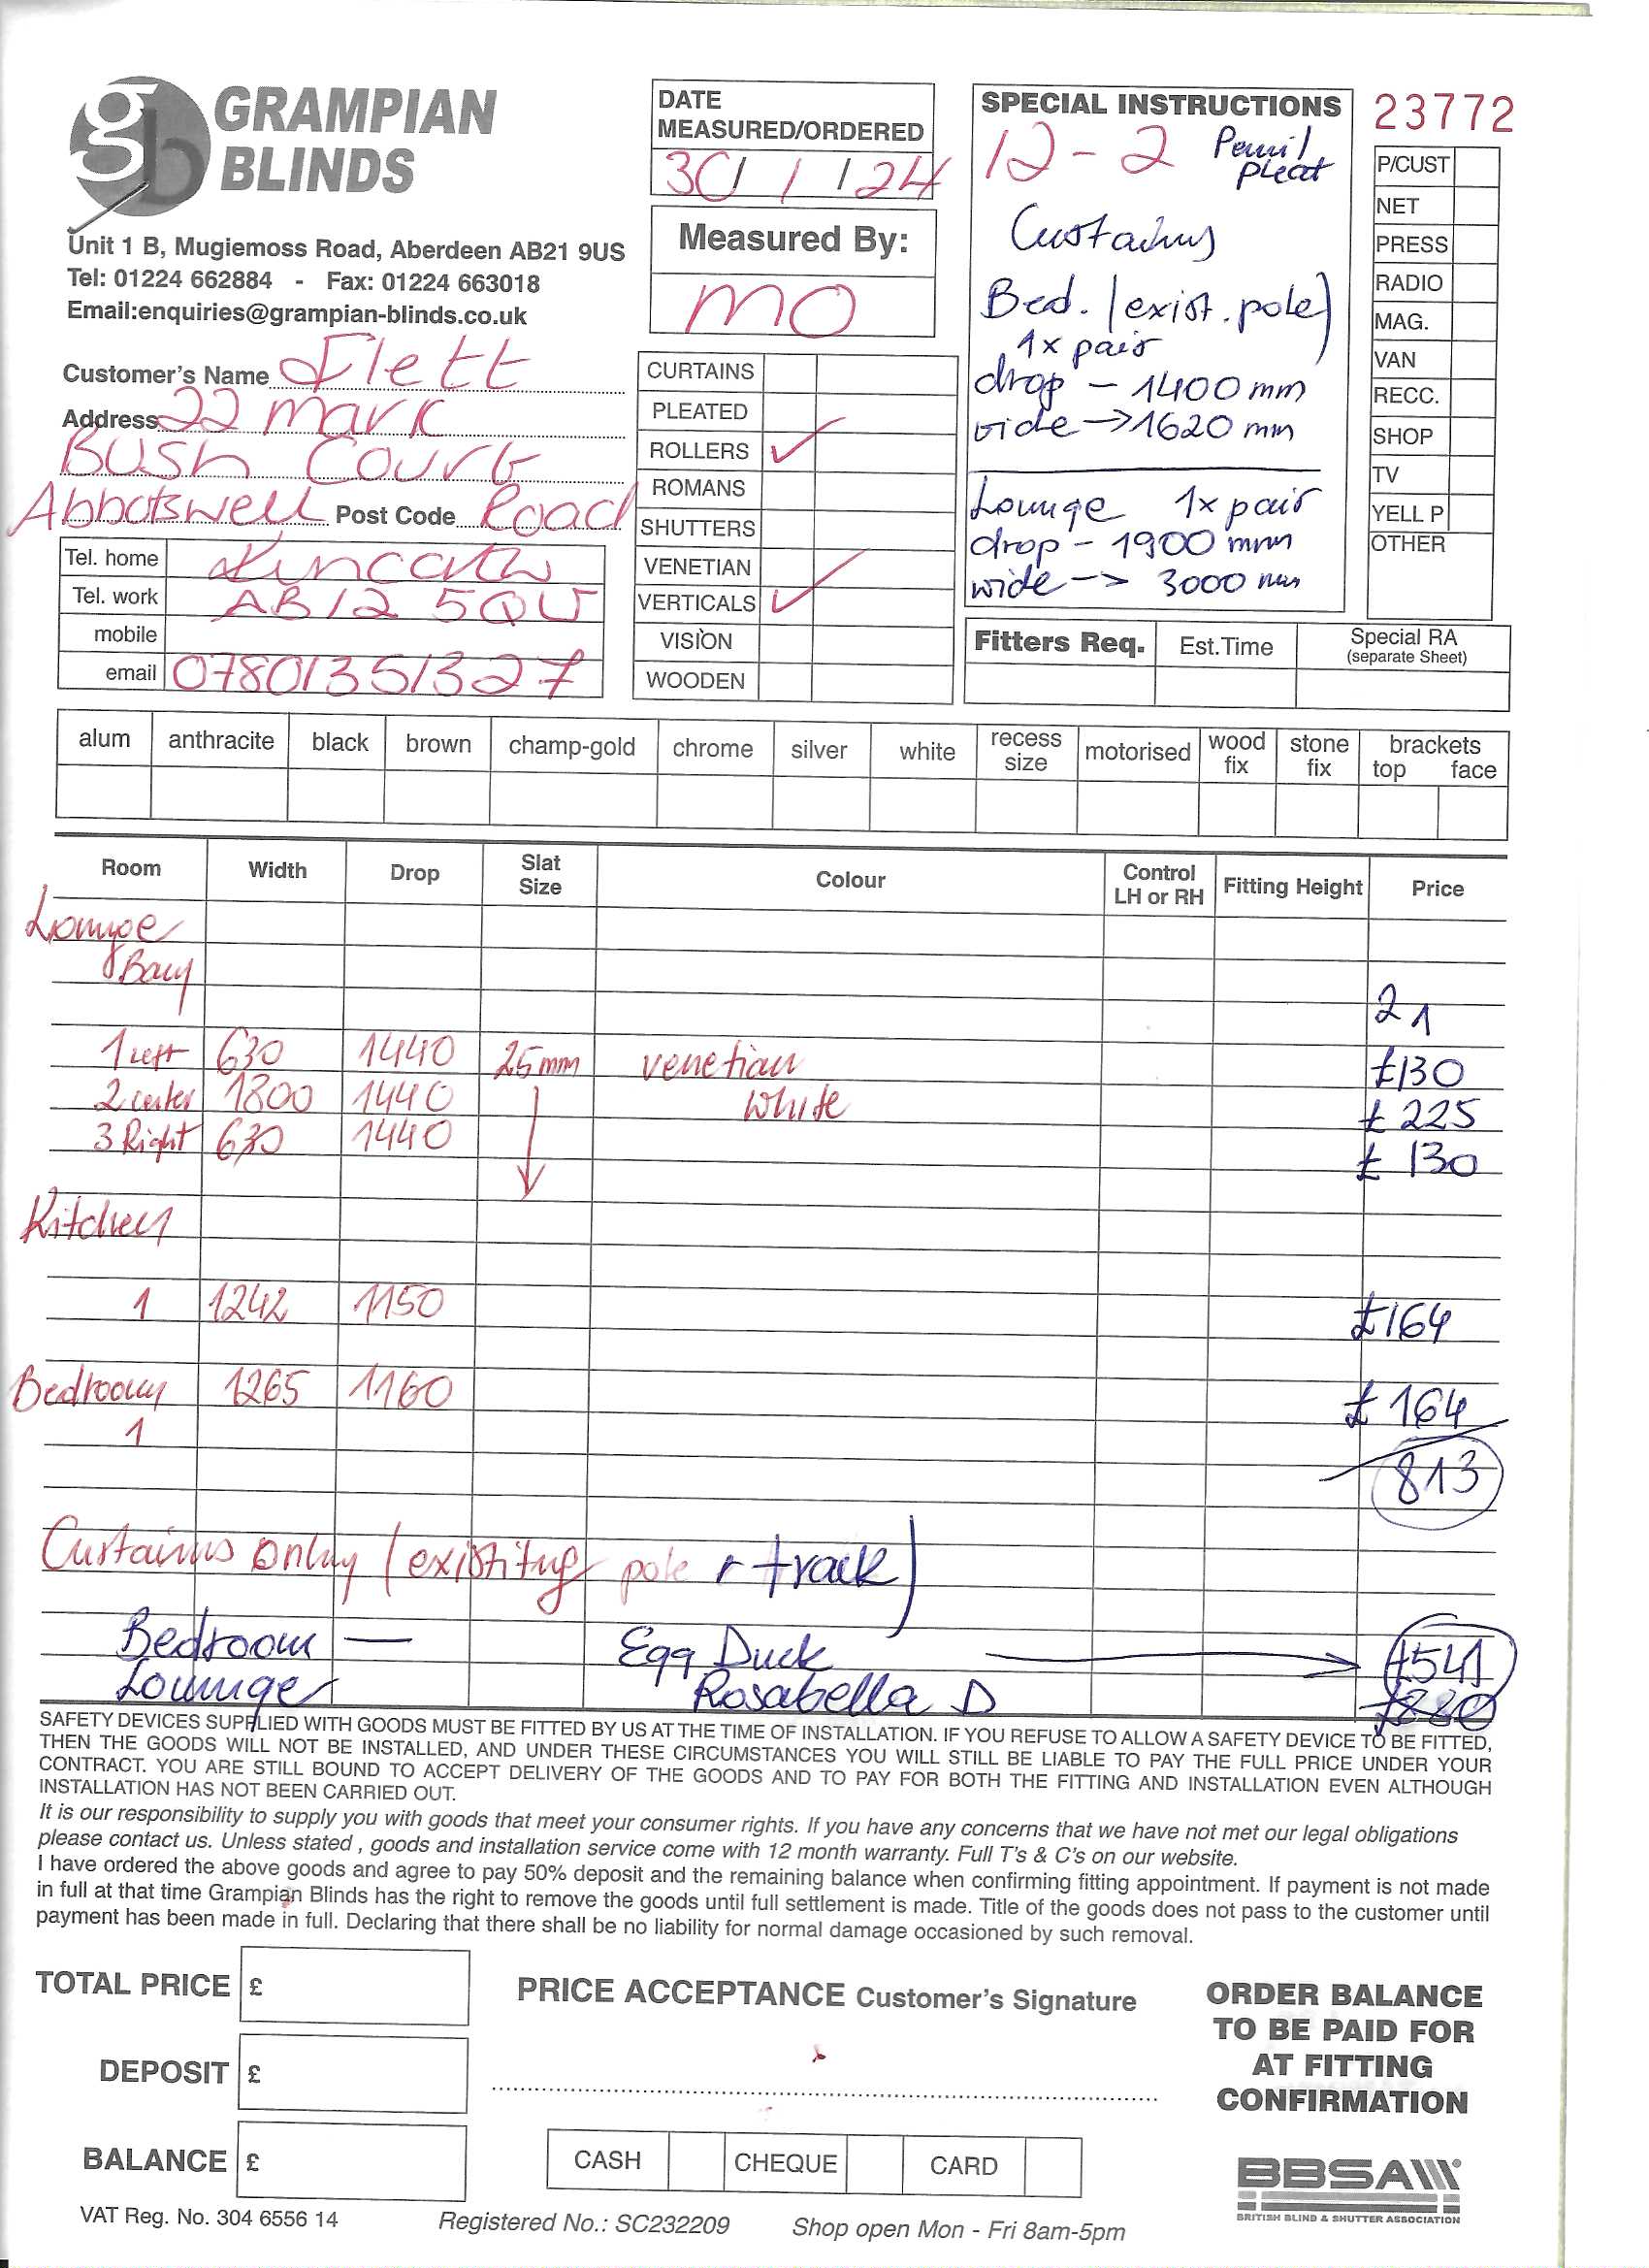 gb GRAMPIAN
BLINDS
Unit 1 B, Mugiemoss Road, Aberdeen AB21 9US
Tel: 01224 662884 - Fax: 01224 663018
Email:enquiries@grampian-blinds.co.uk
DATE
MEASURED/ORDERED
30/1/24
Measured By:
MO
SPECIAL INSTRUCTIONS
12-2 Pencil
pleat
Curtains
Bed. (exist. pole)
1x pair
drop - 1400 mm
wide -> 1620 mm
Lounge 1x pair
drop - 1900 mm
wide -> 3000 mm
23772
P/CUST
NET
PRESS
RADIO
MAG.
VAN
RECC.
SHOP
TV
YELL P
OTHER
Customer's Name Flett
Address 22 Mark
Bush Court
Abbotswell Post Code Road
Tel. home Kincorth
Tel. work AB12 5QU
mobile
email 07801351327
CURTAINS
PLEATED
ROLLERS ✓
ROMANS
SHUTTERS
VENETIAN
VERTICALS ✓
VISION
WOODEN
Fitters Req. Est.Time Special RA
(separate Sheet)
alum anthracite black brown champ-gold chrome silver white recess size motorised wood fix stone fix brackets top face
Room Width Drop Slat Size Colour Control LH or RH Fitting Height Price
Lounge
Bay
21
1 left 630 1440 25mm venetian £130
2 center 1800 1440 white £225
3 Right 630 1440 £130
Kitchen
1 1242 1150 £164
Bedroom 1265 1160 £164
1
813
Curtains only (existing pole + track)
Bedroom — Egg Duck £541
Lounge Rosabella D
SAFETY DEVICES SUPPLIED WITH GOODS MUST BE FITTED BY US AT THE TIME OF INSTALLATION. IF YOU REFUSE TO ALLOW A SAFETY DEVICE TO BE FITTED,
THEN THE GOODS WILL NOT BE INSTALLED, AND UNDER THESE CIRCUMSTANCES YOU WILL STILL BE LIABLE TO PAY THE FULL PRICE UNDER YOUR
CONTRACT. YOU ARE STILL BOUND TO ACCEPT DELIVERY OF THE GOODS AND TO PAY FOR BOTH THE FITTING AND INSTALLATION EVEN ALTHOUGH
INSTALLATION HAS NOT BEEN CARRIED OUT.
It is our responsibility to supply you with goods that meet your consumer rights. If you have any concerns that we have not met our legal obligations
please contact us. Unless stated , goods and installation service come with 12 month warranty. Full T's & C's on our website.
I have ordered the above goods and agree to pay 50% deposit and the remaining balance when confirming fitting appointment. If payment is not made
in full at that time Grampian Blinds has the right to remove the goods until full settlement is made. Title of the goods does not pass to the customer until
payment has been made in full. Declaring that there shall be no liability for normal damage occasioned by such removal.
TOTAL PRICE £
DEPOSIT £
BALANCE £
PRICE ACCEPTANCE Customer's Signature
CASH CHEQUE CARD
ORDER BALANCE
TO BE PAID FOR
AT FITTING
CONFIRMATION
BBSA
BRITISH BLIND & SHUTTER ASSOCIATION
VAT Reg. No. 304 6556 14 Registered No.: SC232209 Shop open Mon - Fri 8am-5pm